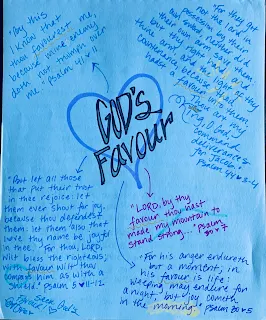 "By this
I know that
thou favourest me,
because mine enemy
doth not triumph over
me." Psalm 41:11
"For they got
not the land
in possession by their
own sword, neither
did their own arm
save them
but thy right
hand, and
thine arm, and
the light of thy
countenance, because
thou
hadst a favour
unto them.
Thou art my
King, O God:
command
deliverances
for Jacob."
Psalm 44:3-4
GOD's
Favour
"But let all those
that put their trust
in thee rejoice: let
them ever shout for joy,
because thou defendest
them: let them also that
love thy name be joyful
in thee. For thou, LORD,
wilt bless the righteous;
with favour wilt thou
compass him as with a
shield." psalm 5:11-12
"LORD, by thy
favour thou hast
made my mountain to
stand strong..." psalm
30:7
"For his anger endureth
but a moment; in
his favour is life:
weeping may endure for
a night, but joy cometh
in the morning." psalm 30:5